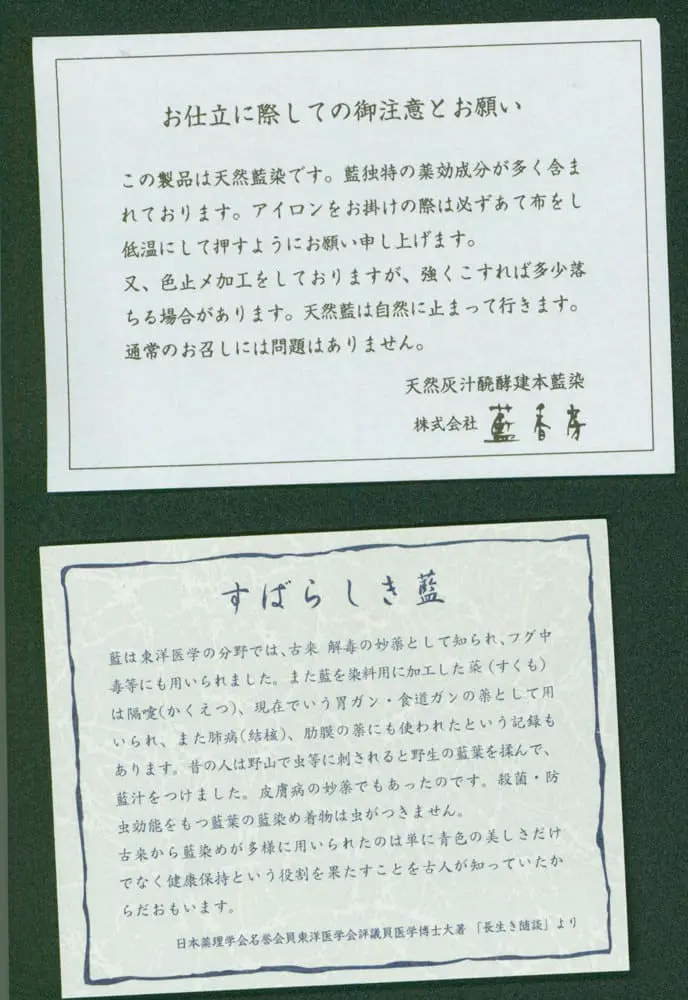 お仕立に際しての御注意とお願い
この製品は天然藍染です。藍独特の薬効成分が多く含ま
れております。アイロンをお掛けの際は必ずあて布をし
低温にして押すようにお願い申し上げます。
又、色止メ加工をしておりますが、強くこすれば多少落
ちる場合があります。天然藍は自然に止まって行きます。
通常のお召しには問題はありません。
天然灰汁醗酵建本藍染
株式会社 藍香房
すばらしき藍
藍は東洋医学の分野では、古来 解毒の妙薬として知られ、フグ中
毒等にも用いられました。また藍を染料用に加工した蒅(すくも)
は隔嚏(かくえつ)、現在でいう胃ガン・食道ガンの薬として用
いられ、また肺病(結核)、肋膜の薬にも使われたという記録も
あります。昔の人は野山で虫等に刺されると野生の藍葉を揉んで、
藍汁をつけました。皮膚病の妙薬でもあったのです。殺菌・防
虫効能をもつ藍葉の藍染め着物は虫がつきません。
古来から藍染めが多様に用いられたのは単に青色の美しさだけ
でなく健康保持という役割を果たすことを古人が知っていたか
らだおもいます。
日本薬理学会名誉会員東洋医学会評議員医学博士大著 「長生き随談」より